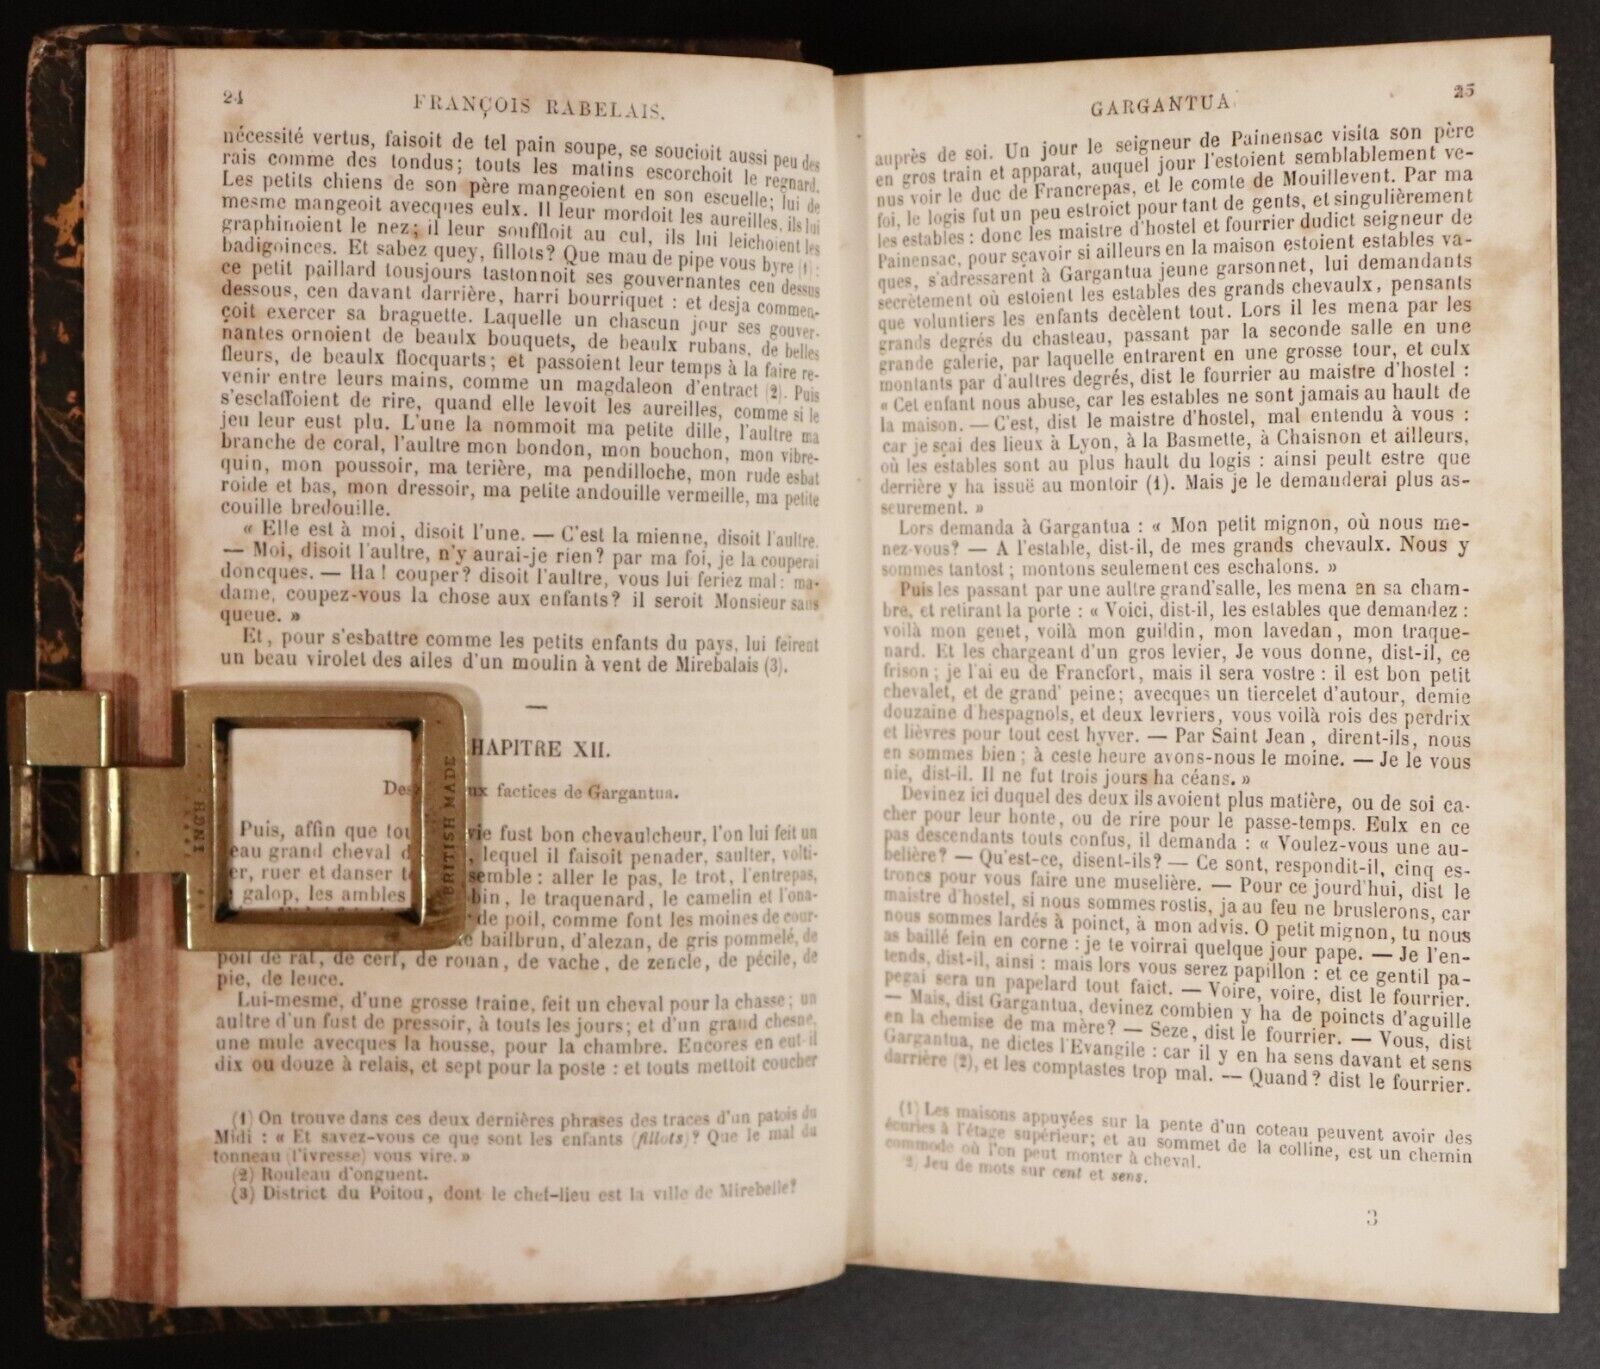 24
FRANÇOIS RABELAIS.
nécessité vertus, faisoit de tel pain soupe, se soucioit aussi peu des
rais comme des tondus; touts les matins escorchoit le regnard.
Les petits chiens de son père mangeoient en son escuelle; lui de
mesme mangeoit avecques eulx. Il leur mordoit les aureilles, ils lui
graphinoient le nez; il leur souffloit au cul, ils lui leichoient les
badigoinces. Et sabez quey, fillots? Que mau de pipe vous byre (1):
ce petit paillard tousjours tastonnoit ses gouvernantes cen dessus
dessous, cen davant darrière, harri bourriquet : et desja commen-
çoit exercer sa braguette. Laquelle un chascun jour ses gouver-
nantes ornoient de beaulx bouquets, de beaulx rubans, de belles
fleurs, de beaulx flocquarts; et passoient leur temps à la faire re-
venir entre leurs mains, comme un magdaleon d'entract (2). Puis
s'esclaffoient de rire, quand elle levoit les aureilles, comme si le
jeu leur eust plu. L'une la nommoit ma petite dille, l'aultre ma
branche de coral, l'aultre mon bondon, mon bouchon, mon vibre-
quin, mon poussoir, ma terière, ma pendilloche, mon rude esbat
roide et bas, mon dressoir, ma petite andouille vermeille, ma petite
couille bredouille.
« Elle est à moi, disoit l'une. — C'est la mienne, disoit l'aultre.
— Moi, disoit l'aultre, n'y aurai-je rien? par ma foi, je la couperai
doncques. — Ha! couper? disoit l'aultre, vous lui feriez mal: ma-
dame, coupez-vous la chose aux enfants? il seroit Monsieur sans
queue. »
Et, pour s'esbattre comme les petits enfants du pays, lui feirent
un beau virolet des ailes d'un moulin à vent de Mirebalais (3).
HAPITRE XII.
Des ux factices de Gargantua.
Puis, affin que tou vie fust bon chevaulcheur, l'on lui feit un
eau grand cheval d , lequel il faisoit penader, saulter, volti-
er, ruer et danser t semble : aller le pas, le trot, l'entrepas,
galop, les ambles bin, le traquenard, le camelin et l'ona-
de poil, comme font les moines de cour-
bailbrun, d'alezan, de gris pommelé, de
poil de rat, de cerf, de rouan, de vache, de zencle, de pécile, de
pie, de leuce.
Lui-mesme, d'une grosse traine, feit un cheval pour la chasse; un
aultre d'un fust de pressoir, à touts les jours; et d'un grand chesne,
une mule avecques la housse, pour la chambre. Encores en eut-il
dix ou douze à relais, et sept pour la poste : et touts mettoit coucher
(1) On trouve dans ces deux dernières phrases des traces d'un patois du
Midi : « Et savez-vous ce que sont les enfants (fillots)? Que le mal du
tonneau (l'ivresse) vous vire. »
(2) Rouleau d'onguent.
(3) District du Poitou, dont le chef-lieu est la ville de Mirebelle?
INCH
BRITISH MADE
GARGANTUA.
25
auprès de soi. Un jour le seigneur de Painensac visita son père
en gros train et apparat, auquel jour l'estoient semblablement ve-
nus voir le duc de Francrepas, et le comte de Mouillevent. Par ma
foi, le logis fut un peu estroict pour tant de gents, et singulièrement
les estables : donc les maistre d'hostel et fourrier dudict seigneur de
Painensac, pour sçavoir si ailleurs en la maison estoient estables va-
ques, s'adressarent à Gargantua jeune garsonnet, lui demandants
secrètement où estoient les estables des grands chevaulx, pensants
que voluntiers les enfants decèlent tout. Lors il les mena par les
grands degrés du chasteau, passant par la seconde salle en une
grande galerie, par laquelle entrarent en une grosse tour, et eulx
montants par d'aultres degrés, dist le fourrier au maistre d'hostel :
« Cet enfant nous abuse, car les estables ne sont jamais au hault de
la maison. — C'est, dist le maistre d'hostel, mal entendu à vous :
car je sçai des lieux à Lyon, à la Basmette, à Chaisnon et ailleurs,
où les estables sont au plus hault du logis : ainsi peult estre que
derrière y ha issuë au montoir (1). Mais je le demanderai plus as-
seurement. »
Lors demanda à Gargantua : « Mon petit mignon, où nous me-
nez-vous? — A l'estable, dist-il, de mes grands chevaulx. Nous y
sommes tantost; montons seulement ces eschalons. »
Puis les passant par une aultre grand'salle, les mena en sa cham-
bre, et retirant la porte : « Voici, dist-il, les estables que demandez :
voilà mon genet, voilà mon guildin, mon lavedan, mon traque-
nard. Et les chargeant d'un gros levier, Je vous donne, dist-il, ce
frison; je l'ai eu de Francfort, mais il sera vostre : il est bon petit
chevalet, et de grand' peine; avecques un tiercelet d'autour, demie
douzaine d'hespagnols, et deux levriers, vous voilà rois des perdrix
et lièvres pour tout cest hyver. — Par Saint Jean, dirent-ils, nous
en sommes bien; à ceste heure avons-nous le moine. — Je le vous
nie, dist-il. Il ne fut trois jours ha céans. »
Devinez ici duquel des deux ils avoient plus matière, ou de soi ca-
cher pour leur honte, ou de rire pour le passe-temps. Eulx en ce
pas descendants touts confus, il demanda : « Voulez-vous une au-
belière? — Qu'est-ce, disent-ils? — Ce sont, respondit-il, cinq es-
troncs pour vous faire une muselière. — Pour ce jourd'hui, dist le
maistre d'hostel, si nous sommes rostis, ja au feu ne bruslerons, car
nous sommes lardés à poinct, à mon advis. O petit mignon, tu nous
as baillé fein en corne : je te voirrai quelque jour pape. — Je l'en-
tends, dist-il, ainsi : mais lors vous serez papillon : et ce gentil pa-
pegai sera un papelard tout faict. — Voire, voire, dist le fourrier.
— Mais, dist Gargantua, devinez combien y ha de poincts d'aguille
en la chemise de ma mère? — Seze, dist le fourrier. — Vous, dist
Gargantua, ne dictes l'Evangile : car il y en ha sens davant et sens
darrière (2), et les comptastes trop mal. — Quand? dist le fourrier.
(1) Les maisons appuyées sur la pente d'un coteau peuvent avoir des
écuries à l'étage supérieur; et au sommet de la colline, est un chemin
commode où l'on peut monter à cheval.
2) Jeu de mots sur cent et sens.
3